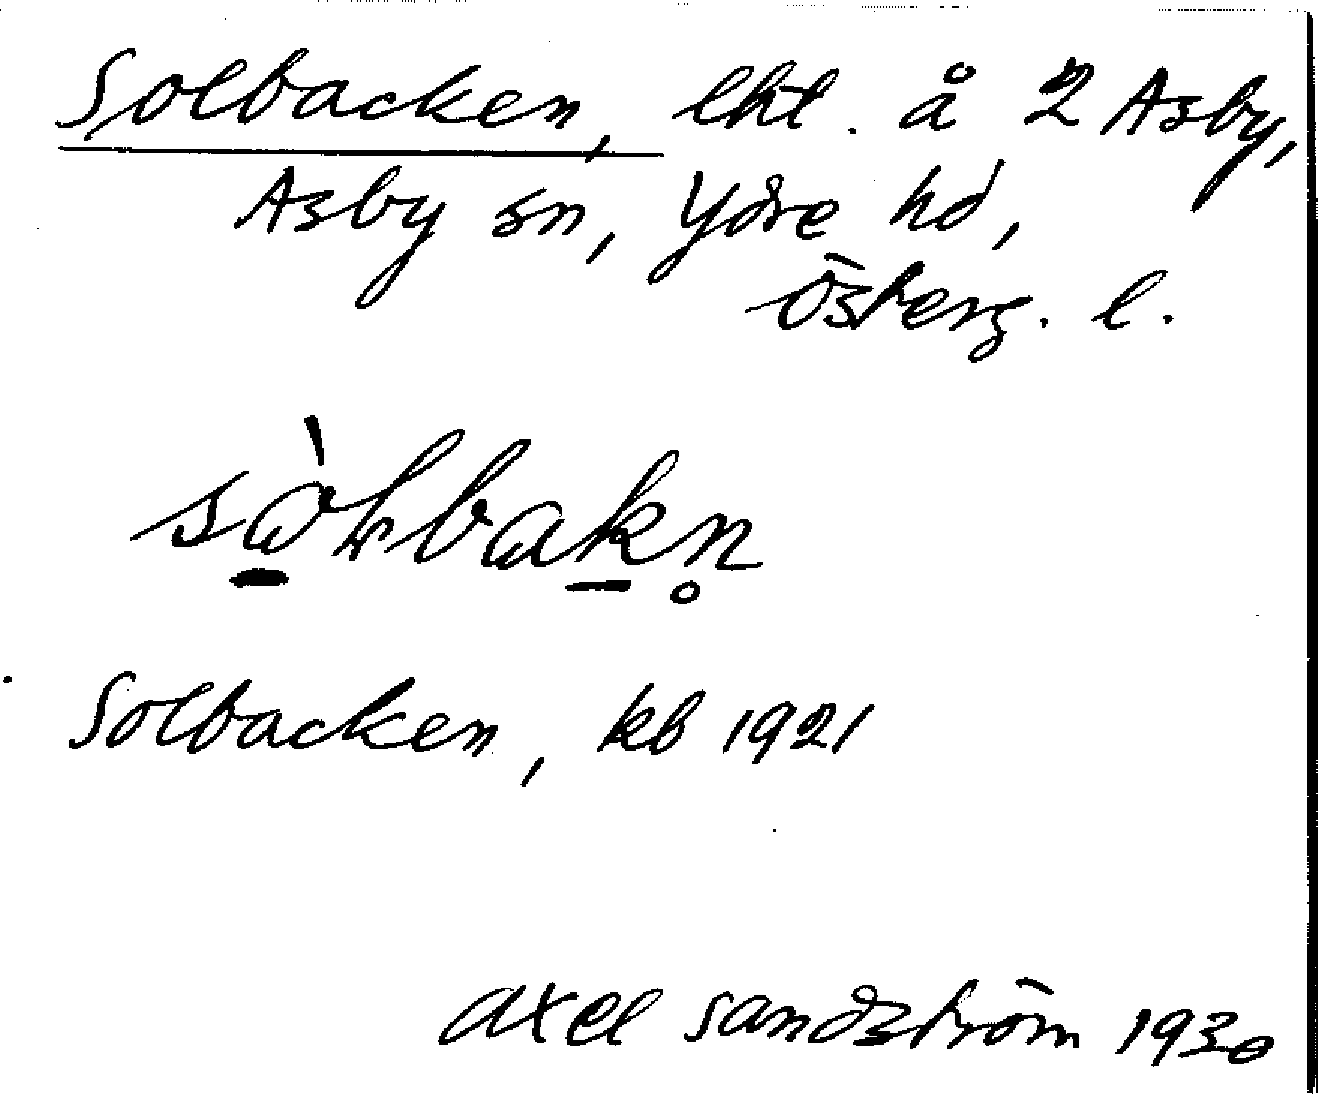 Solbacken, lht. å 2 Asby,
Asby sn, Ydre hd,
Österg. l.
Solbacken, kb 1921
Axel Sandström 1930